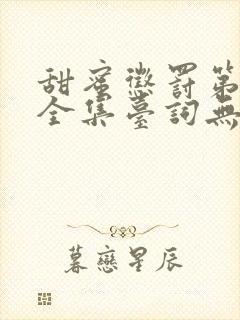 甜蜜懲罰第
全集臺詞無
暮戀星辰